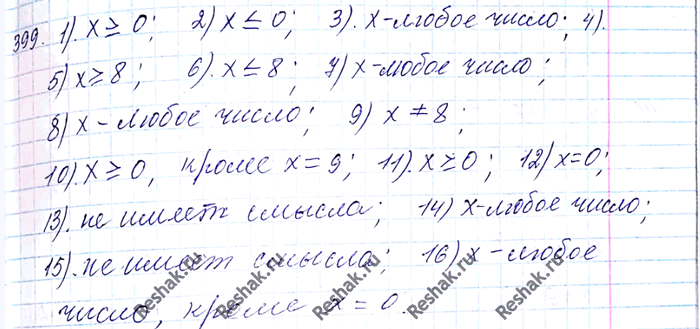 399. 1). x ≥ 0; 2) x ≤ 0; 3). x - любое число; 4).
5) x ≥ 8; 6). x ≤ 8; 7) x - любое число;
8) x - любое число; 9) x ≠ 8;
10). x ≥ 0, кроме x = 9; 11). x ≥ 0; 12) x = 0;
13). не имеет смысла; 14) x - любое число;
15). не имеет смысла; 16) x - любое
число, кроме x = 0.
Reshak.ru
Reshak.ru
Reshak.ru
Reshak.ru